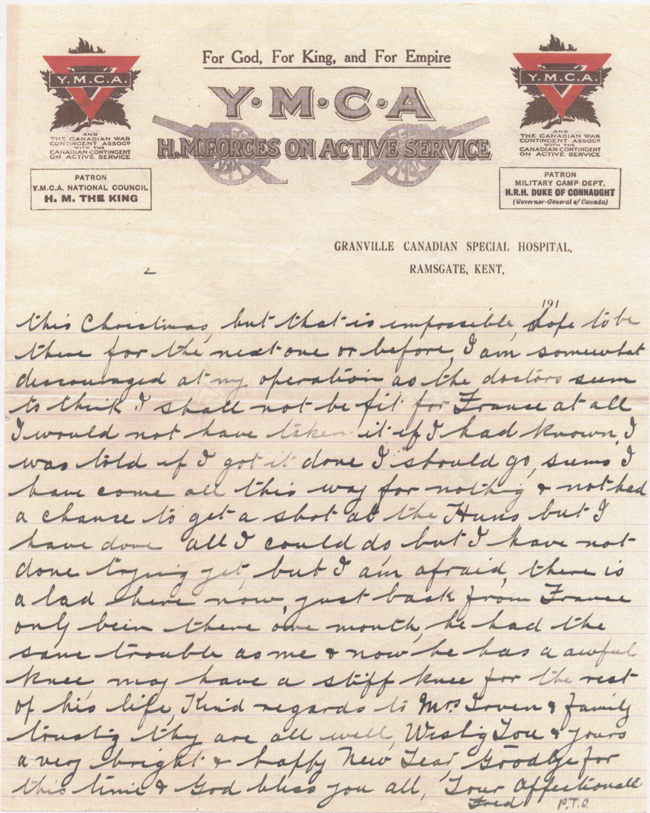 For God, For King, and For Empire
Y·M·C·A
H.M. FORCES ON ACTIVE SERVICE
Y.M.C.A.
AND
THE CANADIAN WAR
CONTINGENT ASSOCN
WITH THE
CANADIAN CONTINGENT
ON ACTIVE SERVICE
PATRON
Y.M.C.A. NATIONAL COUNCIL
H. M. THE KING
Y.M.C.A.
AND
THE CANADIAN WAR
CONTINGENT ASSOCN
WITH THE
CANADIAN CONTINGENT
ON ACTIVE SERVICE
PATRON
MILITARY CAMP DEPT.
H.R.H. DUKE OF CONNAUGHT
(Governor-General of Canada)
GRANVILLE CANADIAN SPECIAL HOSPITAL,
RAMSGATE, KENT,
2
191
this Christmas, but that is impossible, hope to be
there for the next one or before, I am somewhat
discouraged at my operation as the doctors seem
to think I shall not be fit for France at all
I would not have taken it if I had known, I
was told if I got it done I should go, sums I
have come all this way for nothig & not had
a chance to get a shot at the Huns but I
have done all I could do but I have not
done trying yet, but I am afraid, there is
a lad here now, just back from France
only bein there one month, he had the
same trouble as me & now he has a awful
knee may have a stiff knee for the rest
of his life, Kind regards to Mrs Irven & family
trustig thy are all well, Weshig You & yours
a very bright & happy New Year, Goodbye for
this time & God bless you all, Your Affectionate
Fred P.T.O.